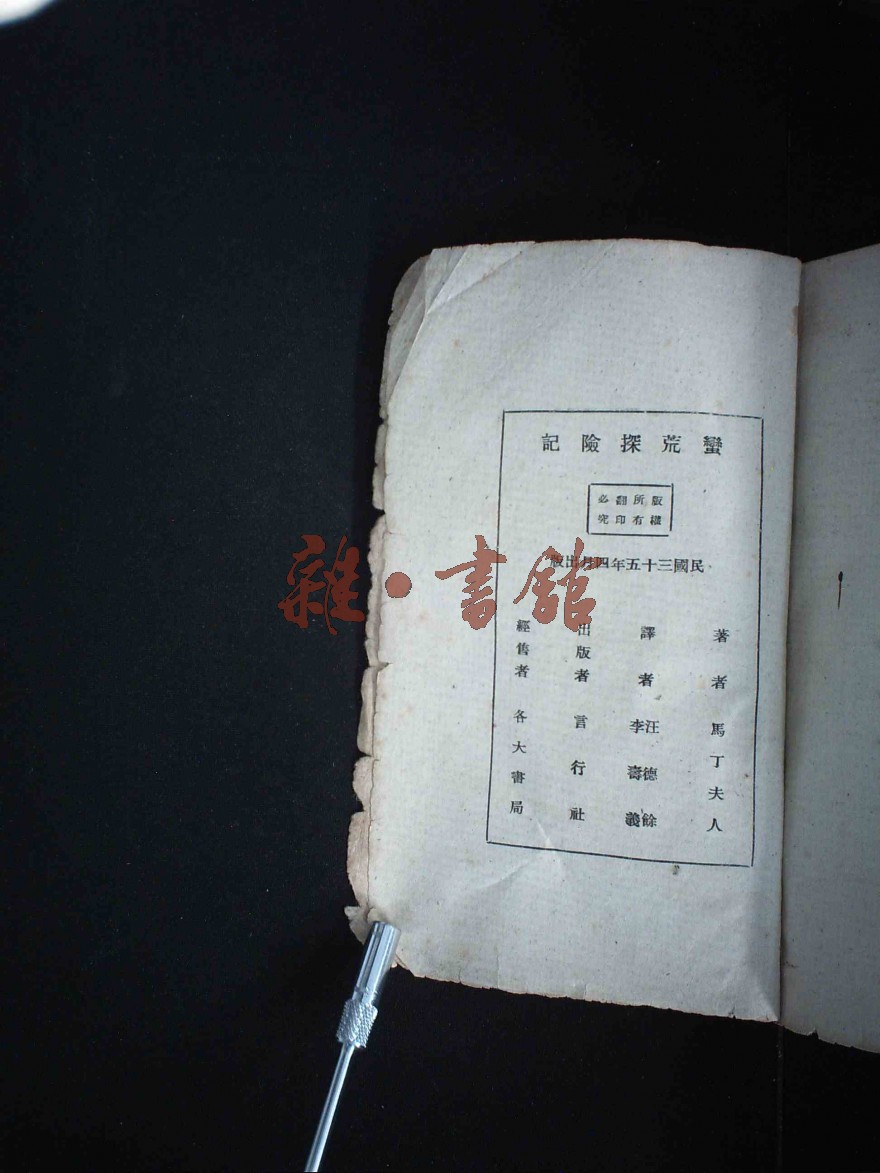 蠻荒探險記
版權所有
翻印必究
民國三十五年四月出版
著者 馬丁夫人
譯者 汪德餘 李壽義
出版者 言行社
經售者 各大書局
雜·書館